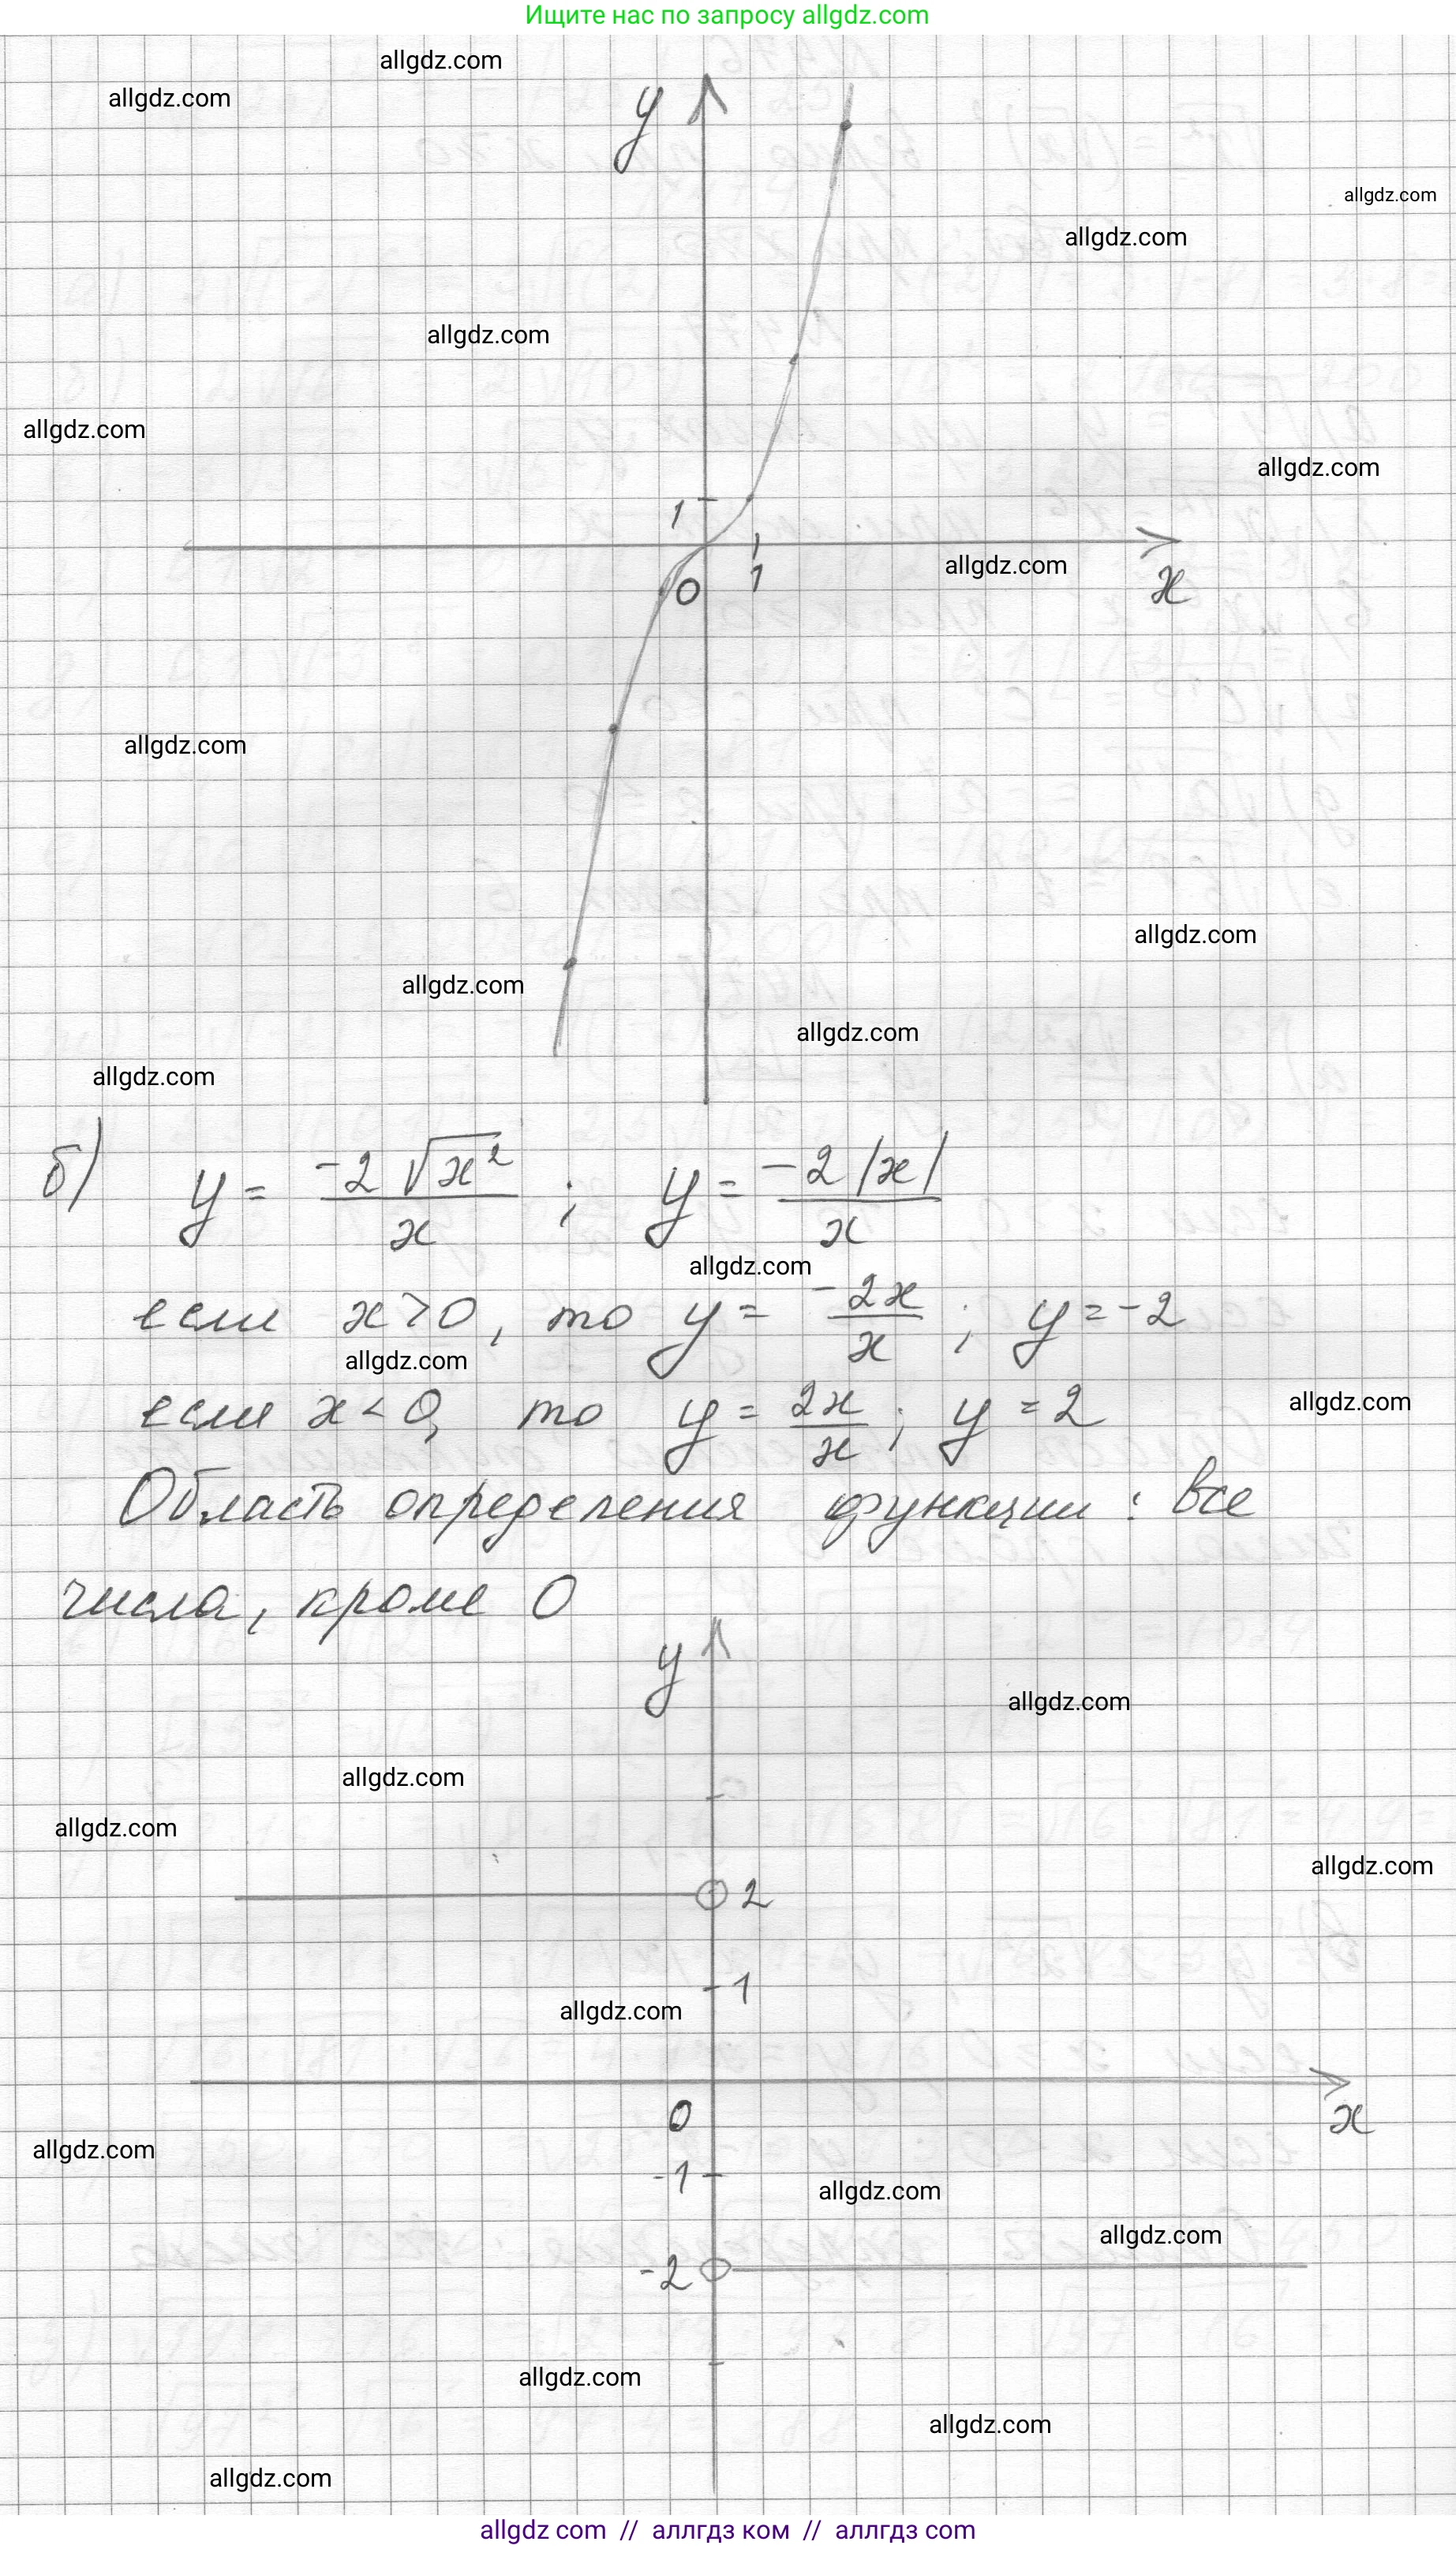 Ищите нас по запросу allgdz.com
allgdz.com
allgdz.com
y
allgdz.com
allgdz.com
allgdz.com
allgdz.com
allgdz.com
1
0 1
allgdz.com
x
allgdz.com
allgdz.com
allgdz.com
allgdz.com
allgdz.com
б) y = -2√x² / x ; y = -2|x| / x
allgdz.com
если x > 0, то y = -2x / x ; y = -2
allgdz.com
allgdz.com
если x < 0, то y = 2x / x ; y = 2
Область определения функции : все
числа, кроме 0
y
allgdz.com
allgdz.com
allgdz.com
allgdz.com
2
1
allgdz.com
0
x
allgdz.com
-1
allgdz.com
allgdz.com
-2
allgdz.com
allgdz.com
allgdz.com
allgdz com // аллгдз ком // аллгдз com